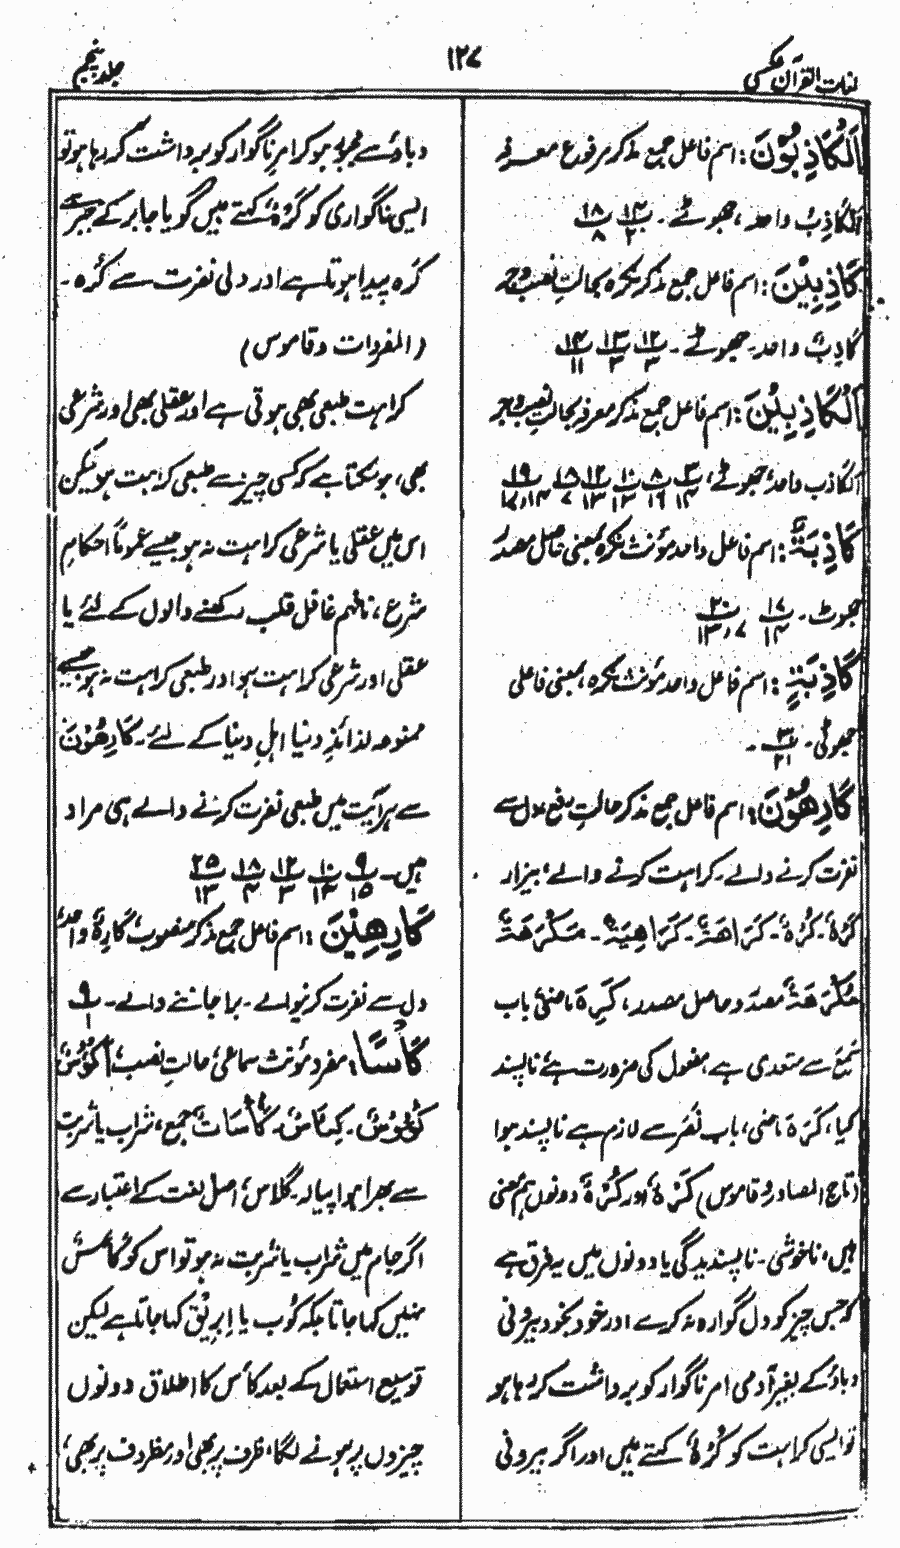 لغات القرآن مکسی
۱۲۷
جلد پنجم
اَلْكَاذِبُوْنَ: اسم فاعل جمع مذکر مرفوع معرفہ
اَلْکَاذِبُ واحد، جھوٹے۔ ۱۴/۲ ۱۸/۸
كَاذِبِيْنَ: اسم فاعل جمع مذکر نکرہ بحالتِ نصب و جر
کَاذِبٌ واحد۔ جھوٹے۔ ۱۲/۳ ۱۳/۳ ۱۴/۱۱
اَلْكَاذِبِيْنَ: اسم فاعل جمع مذکر معرفہ بحالتِ نصب و جر
الکاذب واحد، جھوٹے، ۳/۱۴ ۸/۱۶ ۱۰/۱۳ ۱۲/۱۳ ۱۵/۷ ۱۹/۱۴،۱۷
كَاذِبَةٌ: اسم فاعل واحد مؤنث نکرہ بمعنی حاصل مصدر
جھوٹ۔ ۱۷/۱۴ ۲۰/۷،۱۳
كَاذِبَةٍ: اسم فاعل واحد مؤنث نکرہ، بمعنی فاعلی
جھوٹی۔ ۳۰/۲۱ ۔
كَارِهُوْنَ: اسم فاعل جمع مذکر حالتِ رفع، دل سے
نفرت کرنے والے۔ کراہت کرنے والے، بیزار
کَرْہٌ۔ کُرْہٌ۔ کَرَاهَةٌ۔ کَرَاهِيَةٌ۔ مَكْرَهَةٌ
مَكْرُهَةٌ مصدر و حاصل مصدر، کَرِہَ ماضی باب
سَمِعَ سے متعدی ہے، مفعول کی ضرورت ہے، ناپسند
کیا، کَرُہَ ماضی، باب نصر سے لازم ہے ناپسند ہوا
(تاج المصادر و قاموس) کَرْہٌ، اور کُرْہٌ، دونوں ہم معنی
ہیں، ناخوشی۔ ناپسندیدگی یا دونوں میں یہ فرق ہے
کہ جس چیز کو دل گوارہ نہ کرے اور خود بخود بیرونی
دباؤ کے بغیر آدمی امر ناگوار کو برداشت کر رہا ہو
تو ایسی کراہت کو کُرْہٌ کہتے ہیں اور اگر بیرونی
دباؤ سے مجبور ہو کر امر ناگوار کو برداشت کر رہا ہو تو
ایسی ناگواری کو کَرْہٌ کہتے ہیں گویا جابر کے جبر سے
کَرہ پیدا ہوتا ہے اور دلی نفرت سے کُرہ۔
(المفردات و قاموس)
کراہت طبعی بھی ہوتی ہے اور عقلی بھی اور شرعی
بھی، ہو سکتا ہے کہ کسی چیز سے طبعی کراہت ہو لیکن
اس میں عقلی یا شرعی کراہت نہ ہو جیسے عموماً احکامِ
شرع، نافہم غافل قلب رکھنے والوں کے لئے یا
عقلی اور شرعی کراہت ہو اور طبعی کراہت نہ ہو جیسے
ممنوعہ لذائذِ دنیا اہلِ دنیا کے لئے۔ کَارِهُوْنَ
سے ہر آیت میں طبعی نفرت کرنے والے ہی مراد
ہیں۔ ۹/۱۵ ۱۰/۱۴ ۱۲/۳ ۱۸/۴ ۲۵/۱۳
كَارِهِيْنَ: اسم فاعل جمع مذکر منصوب، کَارِہٌ واحد،
دل سے نفرت کرنیوالے۔ برا جاننے والے۔ ۹/۱
كَاْسًا: مفرد مؤنث سماعی، حالتِ نصب، اَکْؤُسٌ
کُؤُوْسٌ۔ کِئَاسٌ۔ کَاْسَاتٌ جمع، شراب یا شربت
سے بھرا ہوا پیالہ۔ گلاس، اصل لغت کے اعتبار سے
اگر جام میں شراب یا شربت نہ ہو تو اس کو کَاْسٌ
نہیں کہا جاتا بلکہ کُوب یا اِبریق کہا جاتا ہے لیکن
توسیع استعمال کے بعد کأس کا اطلاق دونوں
چیزوں پر ہونے لگا، ظرف پر بھی اور مظروف پر بھی،